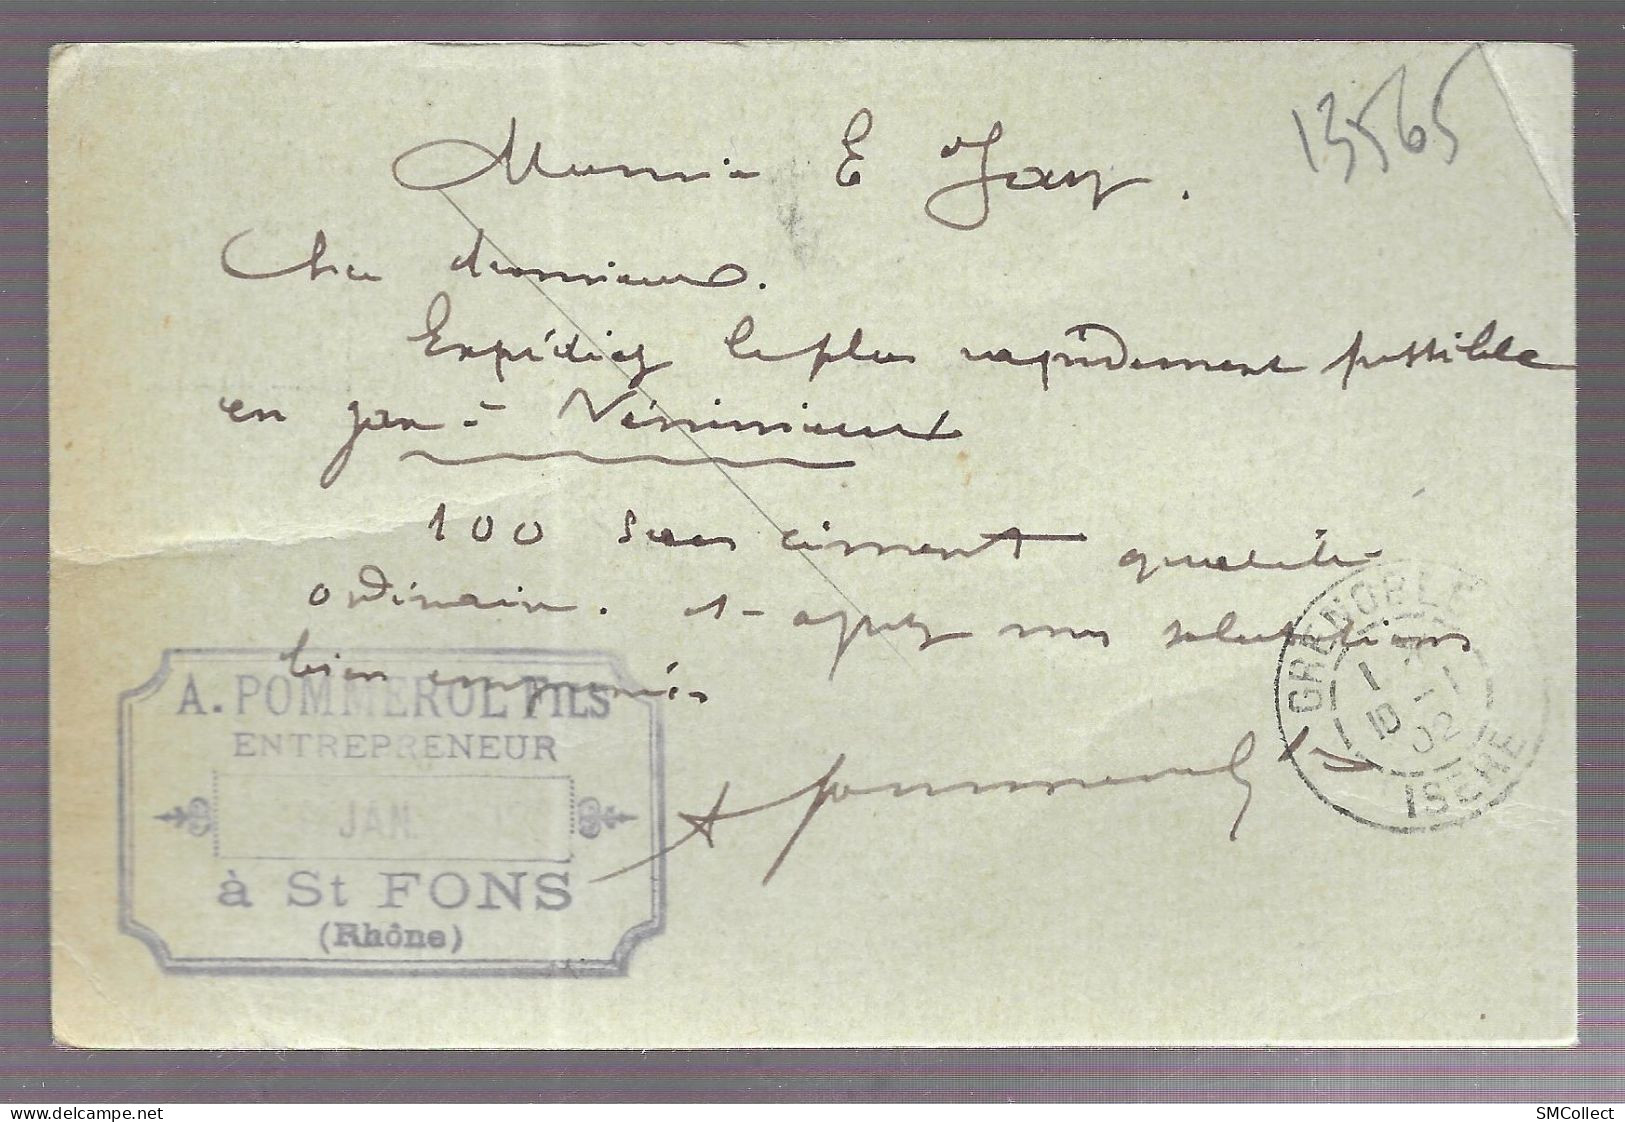 13565
Monsieur E Jay.
Cher Monsieur.
Expédiez le plus rapidement possible
en gare à Vénissieux
100 sacs ciment qualité
ordinaire. et agréez mes salutations
bien empressées
A Pommerol fils
A. POMMEROL FILS
ENTREPRENEUR
JAN.
à St FONS
(Rhône)
GRENOBLE
10 - 1
02
ISERE
delcampe.net
SMCollect